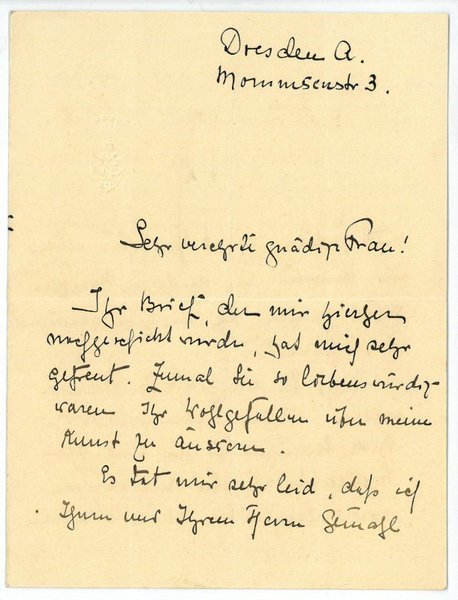 Dresden A.
Mommsenstr 3.
Sehr verehrte gnädige Frau!
Ihr Brief, der mir hierher
nachgeschickt wurde, hat mich sehr
gefreut. Zumal Sie so liebenswürdig
waren Ihr Wohlgefallen über meine
Kunst zu äussern.
Es tat mir sehr leid, daß ich
Ihnen und Ihrem Herrn Gemahl